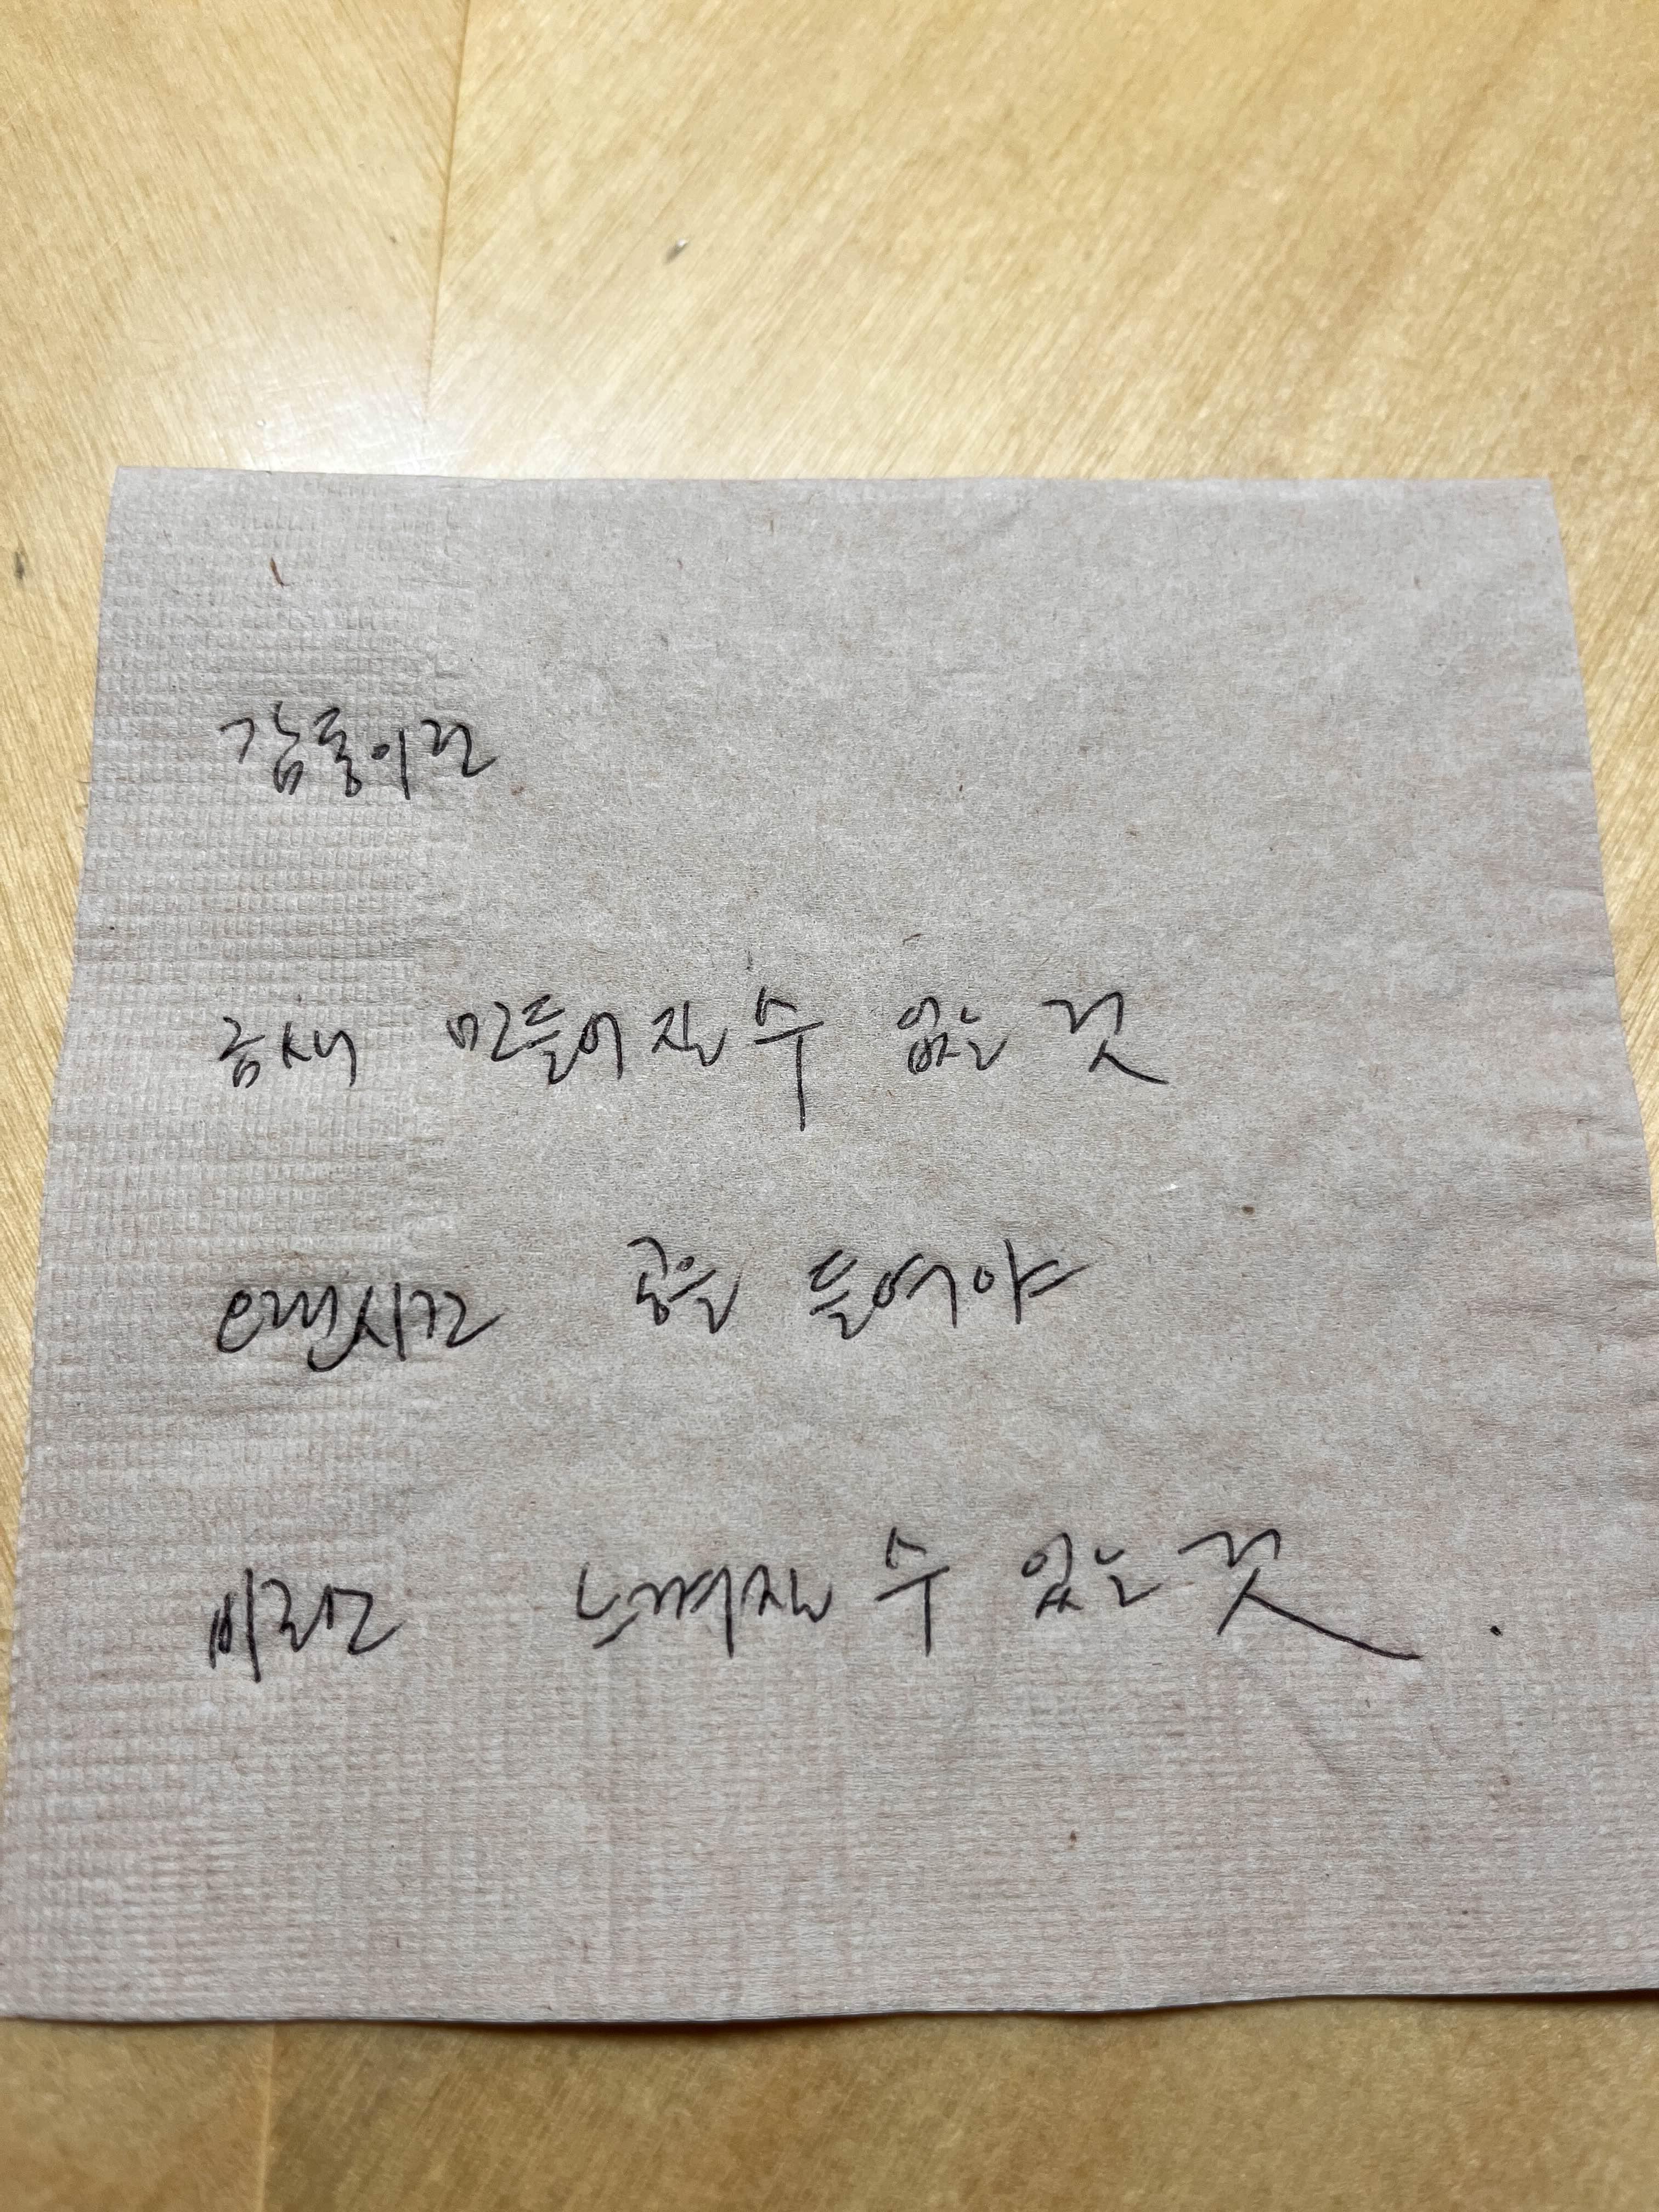 감동이란
금새 만들어 질 수 없는 것
오랜시간 공을 들여야
비로소 느껴질 수 있는 것.